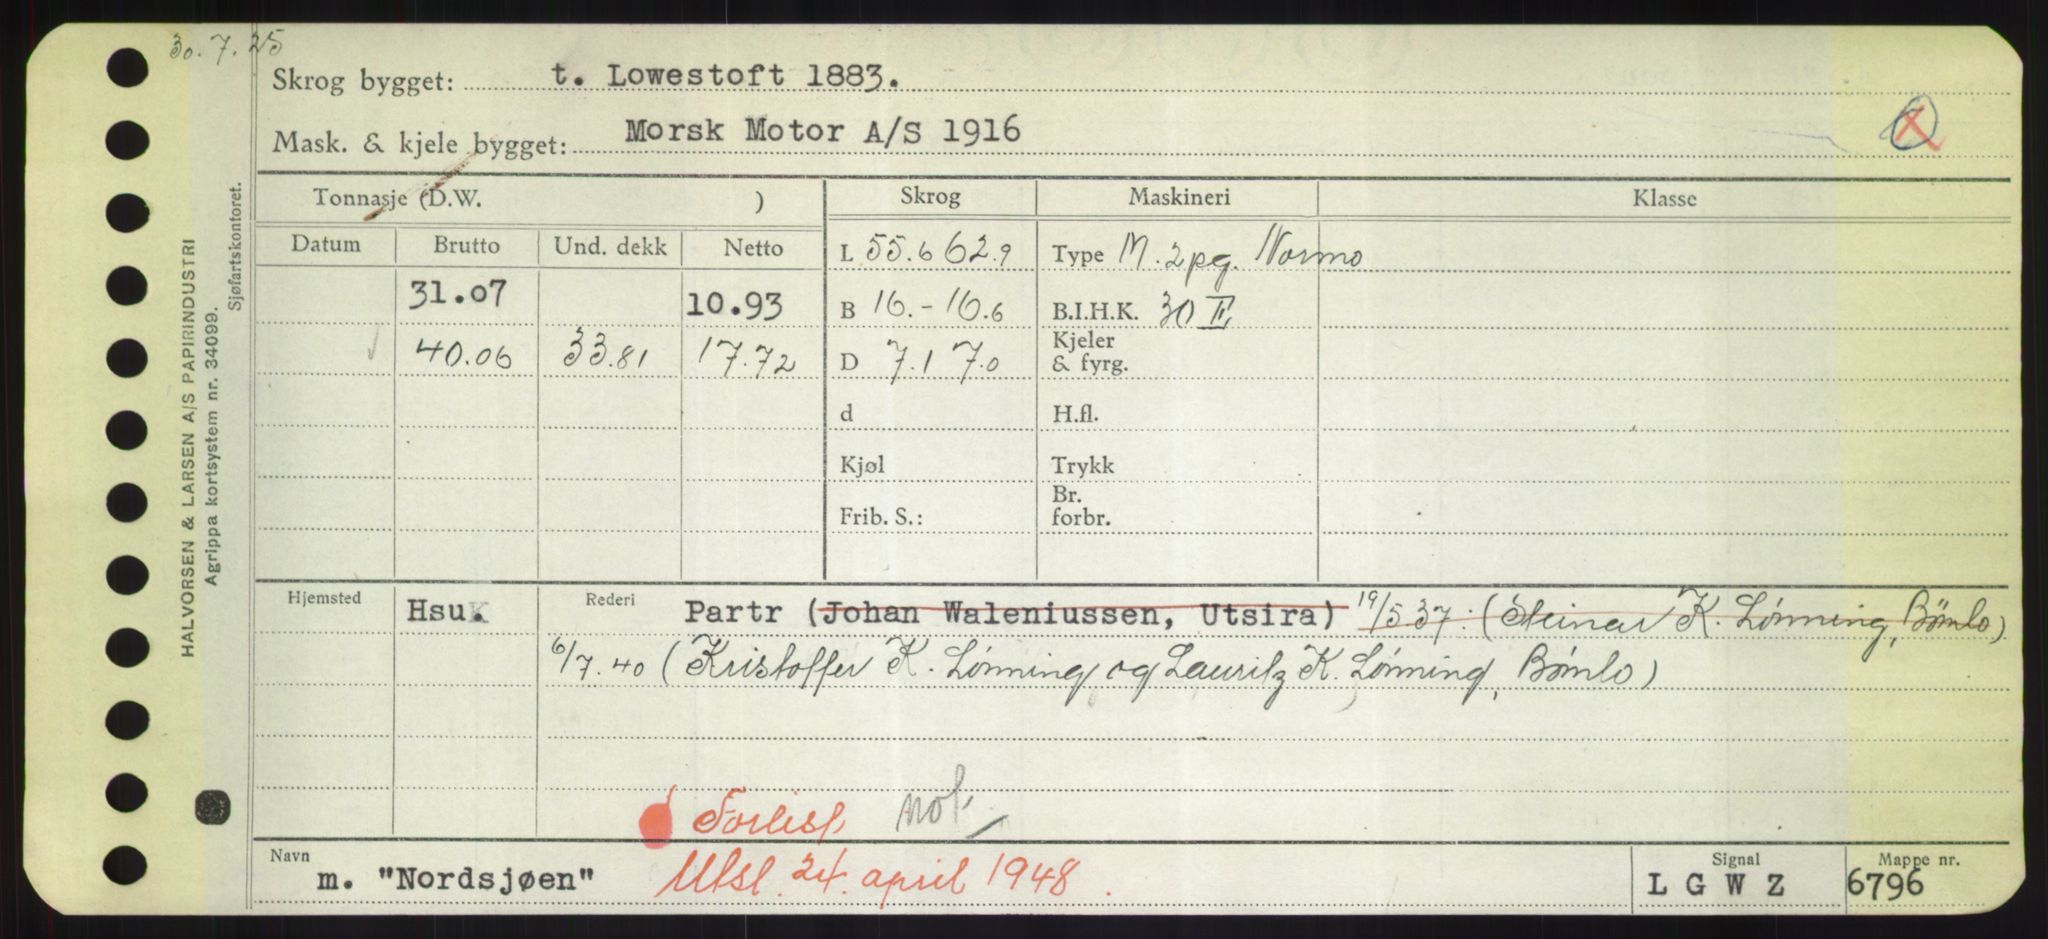 30.7.25
Skrog bygget: t. Lowestoft 1883.
Mask. & kjele bygget: Morsk Motor A/S 1916
Tonnasje (D.W. )
Skrog
Maskineri
Klasse
Datum Brutto Und. dekk Netto
L 55.6 62.9
Type M. 2 pg. Normo
31.07 10.93
B 16.- 16.6
B.I.H.K. 30 E
40.06 33.81 17.72
D 7.1 7.0
Kjeler
& fyrg.
d
H.fl.
Kjøl
Trykk
Br.
Frib. S.:
forbr.
Hjemsted Hsu.
Rederi Partr (Johan Waleniussen, Utsira) 19/5 37. (Steinar K. Lønning, Bömlo)
6/7.40 (Kristoffer K. Lönning og Lauritz K. Lönning, Bömlo)
Forlist not.
Navn m. "Nordsjøen" Utsl. 24. april 1948.
Signal L G W Z
Mappe nr. 6796
HALVORSEN & LARSEN A/S PAPIRINDUSTRI
Agrippa kortsystem nr. 34099.
Sjøfartskontoret.